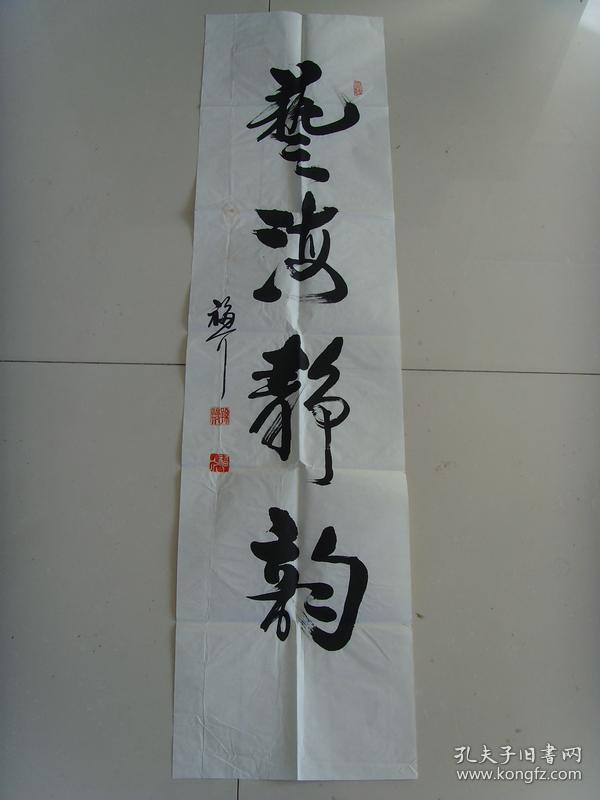 藝海靜韵
孔夫子旧書网
www.kongfz.com